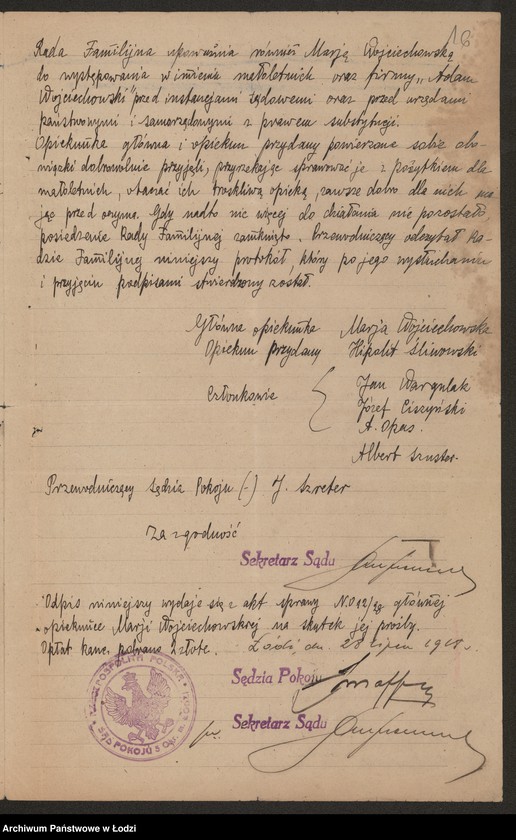 18
Rada Familijna upoważnia również Marję Wojciechowską
do występowania w imieniu małoletnich oraz firmy „Adam
Wojciechowski" przed instancjami sądowemi oraz przed urzędami
państwowymi i samorządnymi z prawem substytucji.
Opiekunka główna i opiekun przydany powierzone sobie obo-
wiązki dobrowolnie przyjęli, przyrzekając sprawować je z pożytkiem dla
małoletnich, otaczać ich troskliwą opieką, zawsze dobro dla nich ma
jąc przed oczyma. Gdy nadto nic więcej do działania nie pozostało,
posiedzenie Rady Familijnej zamknięto. Przewodniczący odczytał Ra-
dzie Familijnej niniejszy protokół, który po jego wysłuchaniu
i przyjęciu podpisami stwierdzony został.
Główna opiekunka Marja Wojciechowska
Opiekun przydany Hipolit Śliwowski
Członkowie
Jan Wargulak
Józef Ciszyński
A. Opas.
Albert Szuster.
Przewodniczący Sędzia Pokoju (-) J. Szreter
Za zgodność
Sekretarz Sądu
Odpis niniejszy wydaje się z akt sprawy głównej
opiekunce Marji Wojciechowskiej na skutek jej prośby.
Opłat kanc. pobrano 2 złote. Łódź, dn. 28 lipca
Sędzia Pokoju
Sekretarz Sądu
RZECZPOSPOLITA POLSKA
SĄD POKOJU
Archiwum Państwowe w Łodzi